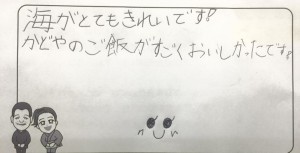 海がとてもきれいです
かどやのご飯がすごくおいしかったです